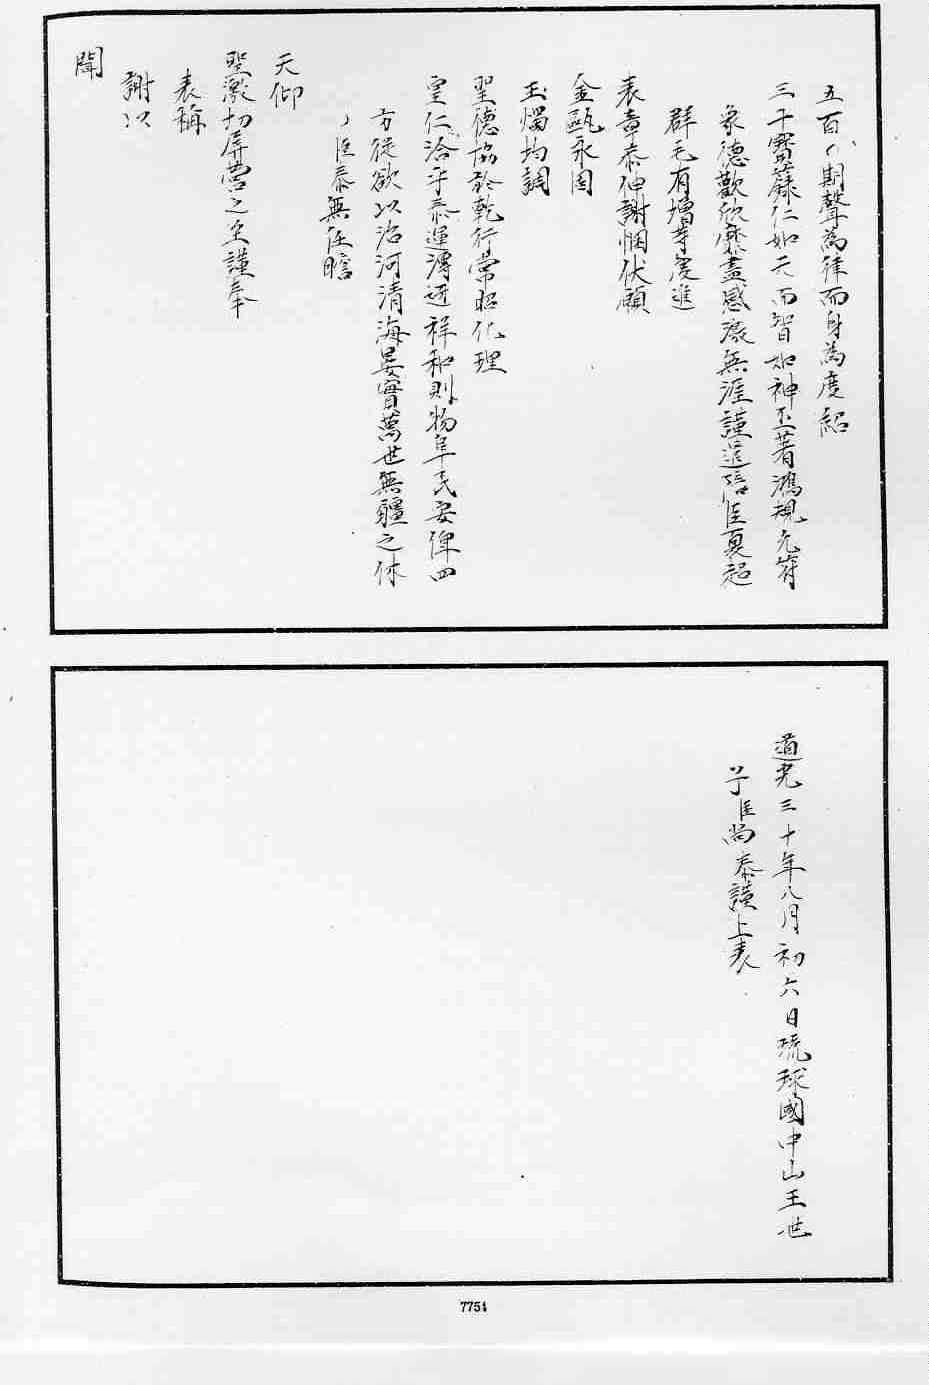 五百之期聲為律而身為度紹
三千寶籙仁如天而智如神丕著鴻規允符
象德歡欣靡盡感激無涯謹遣陪臣夏超
群毛有增等虔進
表章泰伸謝悃伏願
金甌永固
玉燭均調
聖德協於乾行常昭化理
皇仁洽乎泰運溥迓祥和則物阜民安俾四
方從欲以治河清海晏實萬世無疆之休
臣泰無任瞻
天仰
聖激切屏營之至謹奉
表稱
謝以
聞
道光三十年八月初六日琉球國中山王世
子臣尚泰謹上表
7751